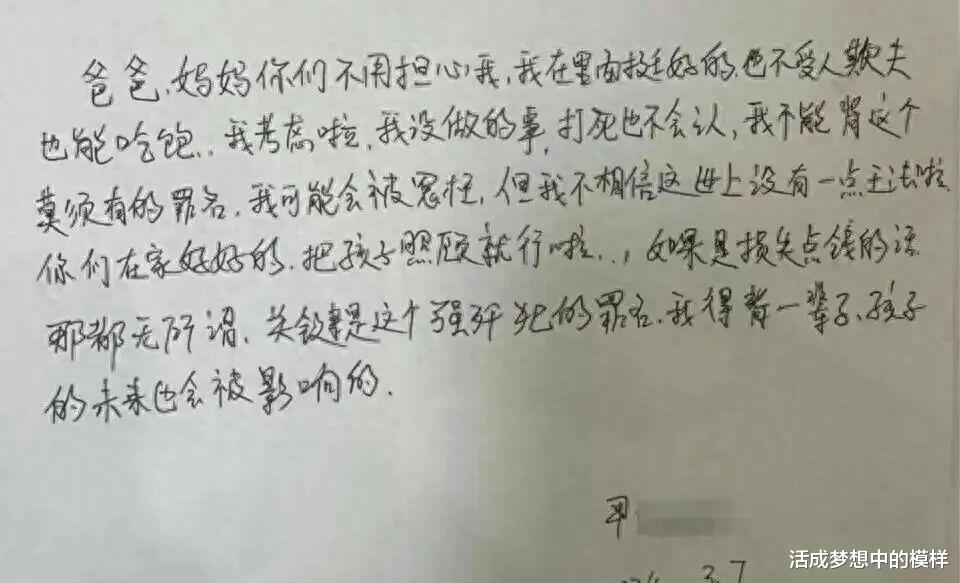 爸爸、妈妈你们不用担心我，我在里面挺好的，也不受人欺夫
也能吃饱..我考虑啦，我没做的事，打死也不会认，我不能背这个
莫须有的罪名，我可能会被冤枉，但我不相信这世上没有一点王法啦
你们在家好好的，把孩子照顾就行啦..，如果是损失点钱的话
那都无所谓，关键是这个强奸犯的罪名，我得背一辈子、孩子
的未来也会被影响的.
甲
3.7
活成梦想中的模样